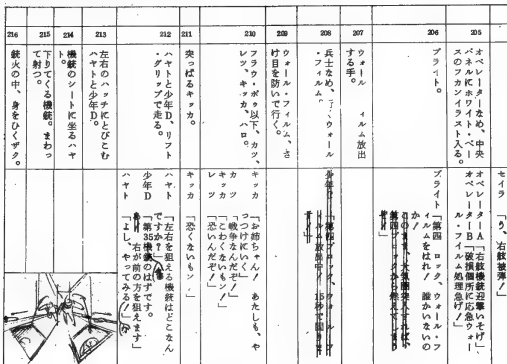 205
オペレーターなめ、中央
パネルにホワイト・ベー
スのフカンイラスト入る。
セイラ「り、右舷被弾!」
オペレーターA「右舷機銃迎撃いそげ」
オペレーターB「破損個所に応急ウォー
ル・フィルム処理急げ!」
206
ブライト。
ブライト「第四ブロック、ウォール・フ
ィルムをはれ! 誰かいないの
か!
207
ウォール ィルム放出
する手。
208
兵士なめ、 ウォール
・フィルム。
「第四ブロック、ウォール・フ
ィルム放出中!
209
ウォール・フィルム、さ
け目を防いで行く。
210
フラウ・ボゥ以下、カツ、
レツ、キッカ、ハロ。
キッカ「お姉ちゃん! あたしも、や
っつけにいく」
カツ「戦争なんだぞ!」
キッカ「こわくないもン!」
レツ「恐いんだぞ」
211
突っぱるキッカ。
キッカ「恐くないもン!」
212
ハヤトと少年D、リフト
・グリップで走る。
ハヤト「左右を狙える機銃はどこなん
ですか?」
少年D「第35機銃のはずです。
右が前の方を狙えます」
ハヤト「よし、やってみる!」
213
左右のハッチにとびこむ
ハヤトと少年D。
214
機銃のシートに坐るハヤ
ト。
215
下りてくる機銃。まわっ
て射つ。
216
銃火の中、身をひくザク。